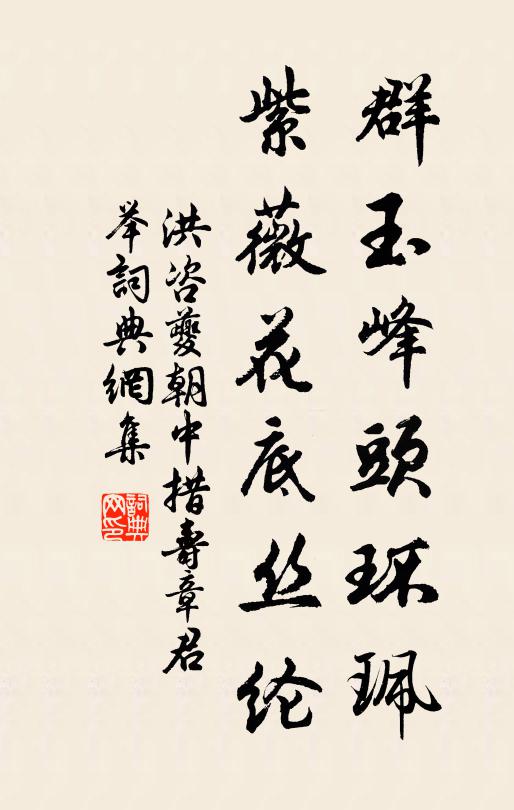 群玉峰頭环珮
紫薇花底丝纶
洪咨夔朝中措壽章君
举詞典網集
詞典網印